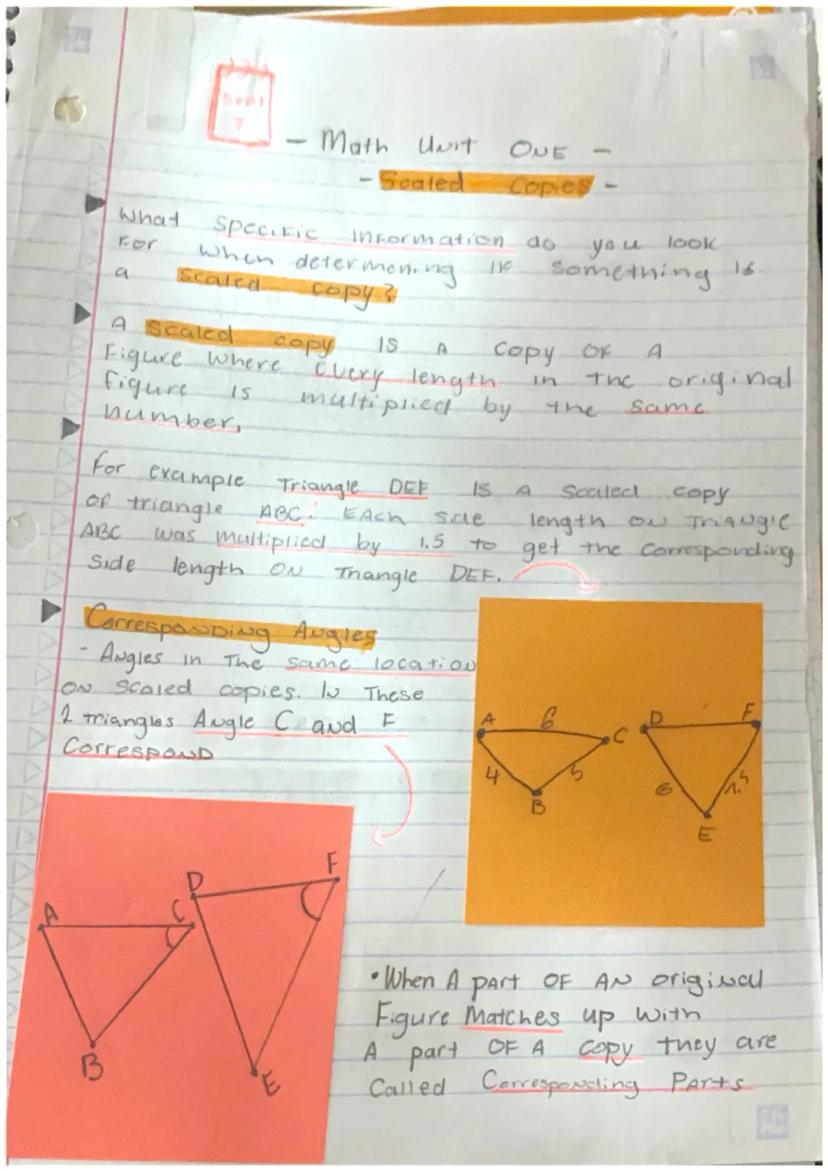 Sept
7
- Math Unit ONE -
- Scaled Copies -
What specific information do you look
For when determening if something is
a scaled copy?
A scaled copy is a copy of a
Figure where every length in the original
figure is multiplied by the same
number.
For example Triangle DEF is a scaled copy
of triangle ABC. Each side length on Triangle
ABC was multiplied by 1.5 to get the corresponding
side length on Triangle DEF.
Corresponding Angles
- Angles in The same location
on scaled copies. In These
2 triangles Angle C and F
Correspond
A 6 C D F
4 5 6
B E
A C D F
B E
•When A part of an original
Figure Matches up with
A part of a copy they are
Called Corresponding Parts